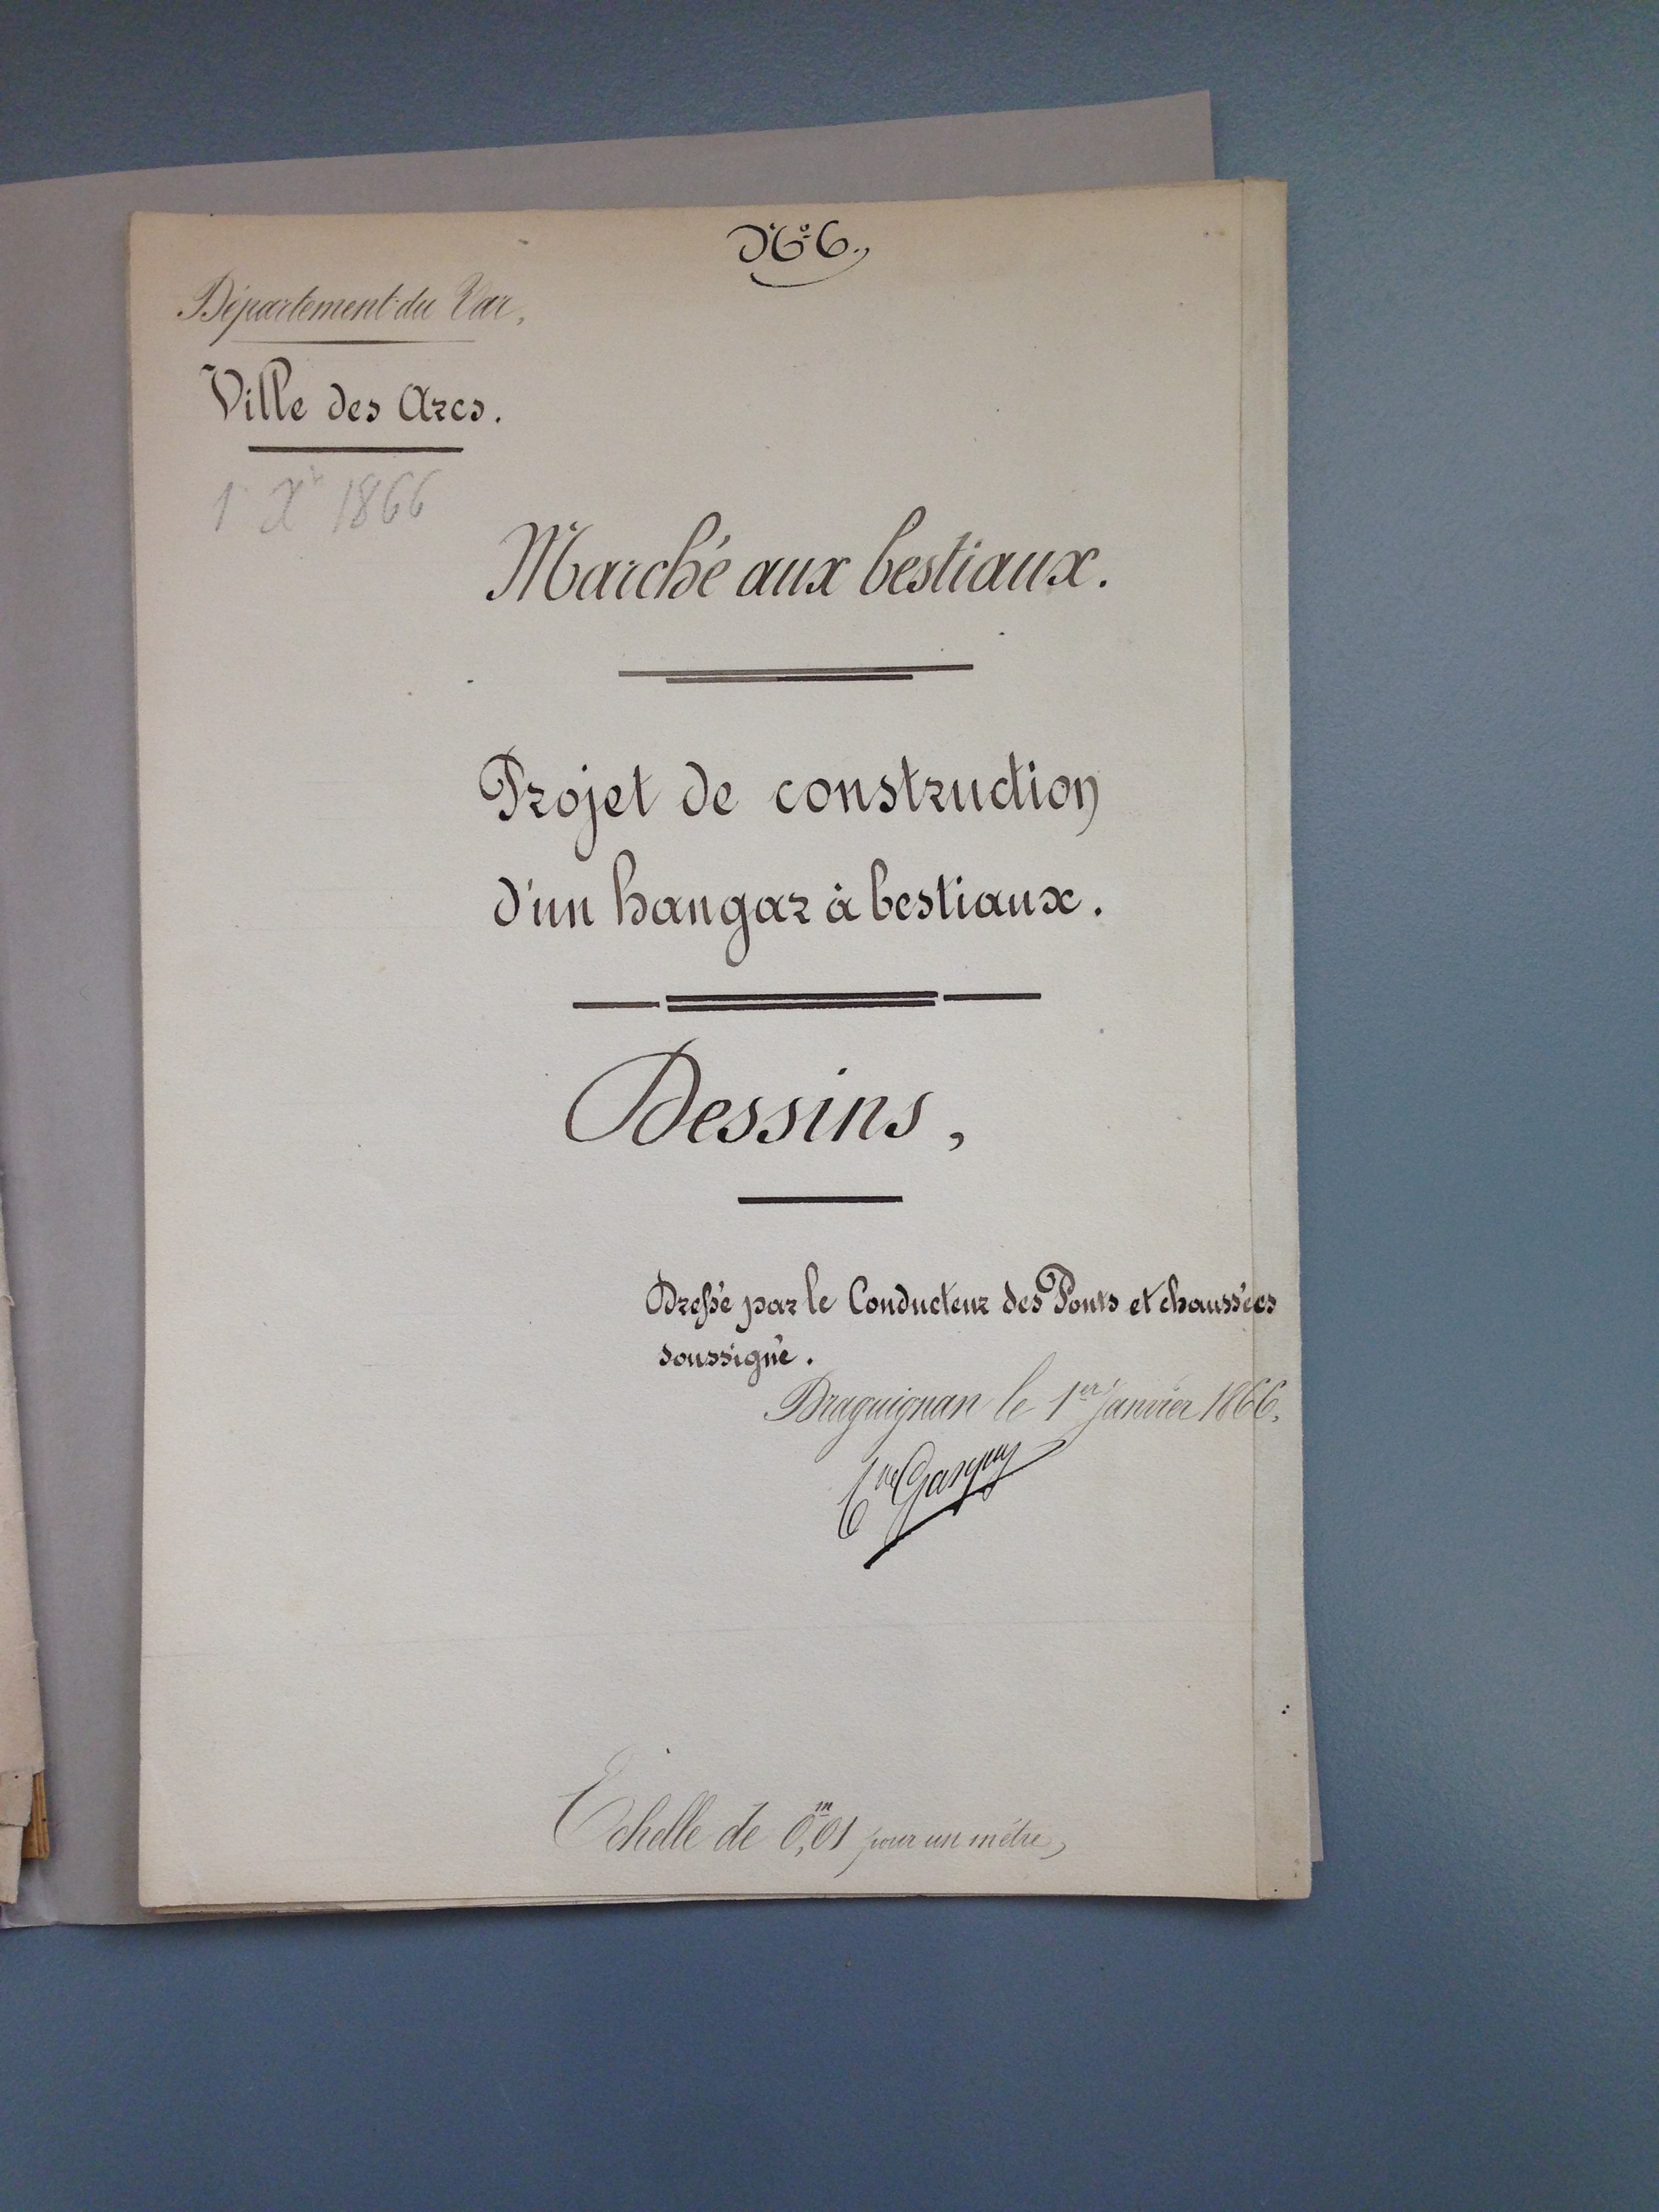 N° 6.
Département du Var,
Ville des Arcs.
1 Xr 1866
Marché aux bestiaux.
Projet de construction
d'un hangar à bestiaux.
Dessins,
Dressé par le Conducteur des Ponts et chaussées
soussigné.
Draguignan le 1er janvier 1866.
Echelle de 0,m01 pour un mètre,